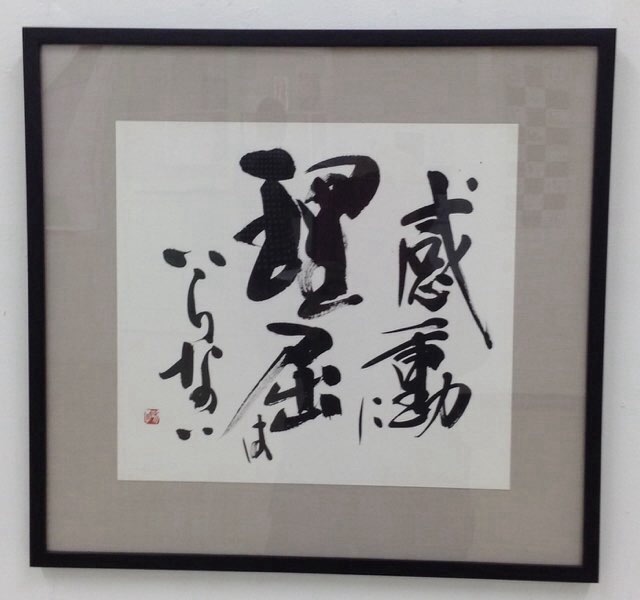 感動に
理屈は
いらない